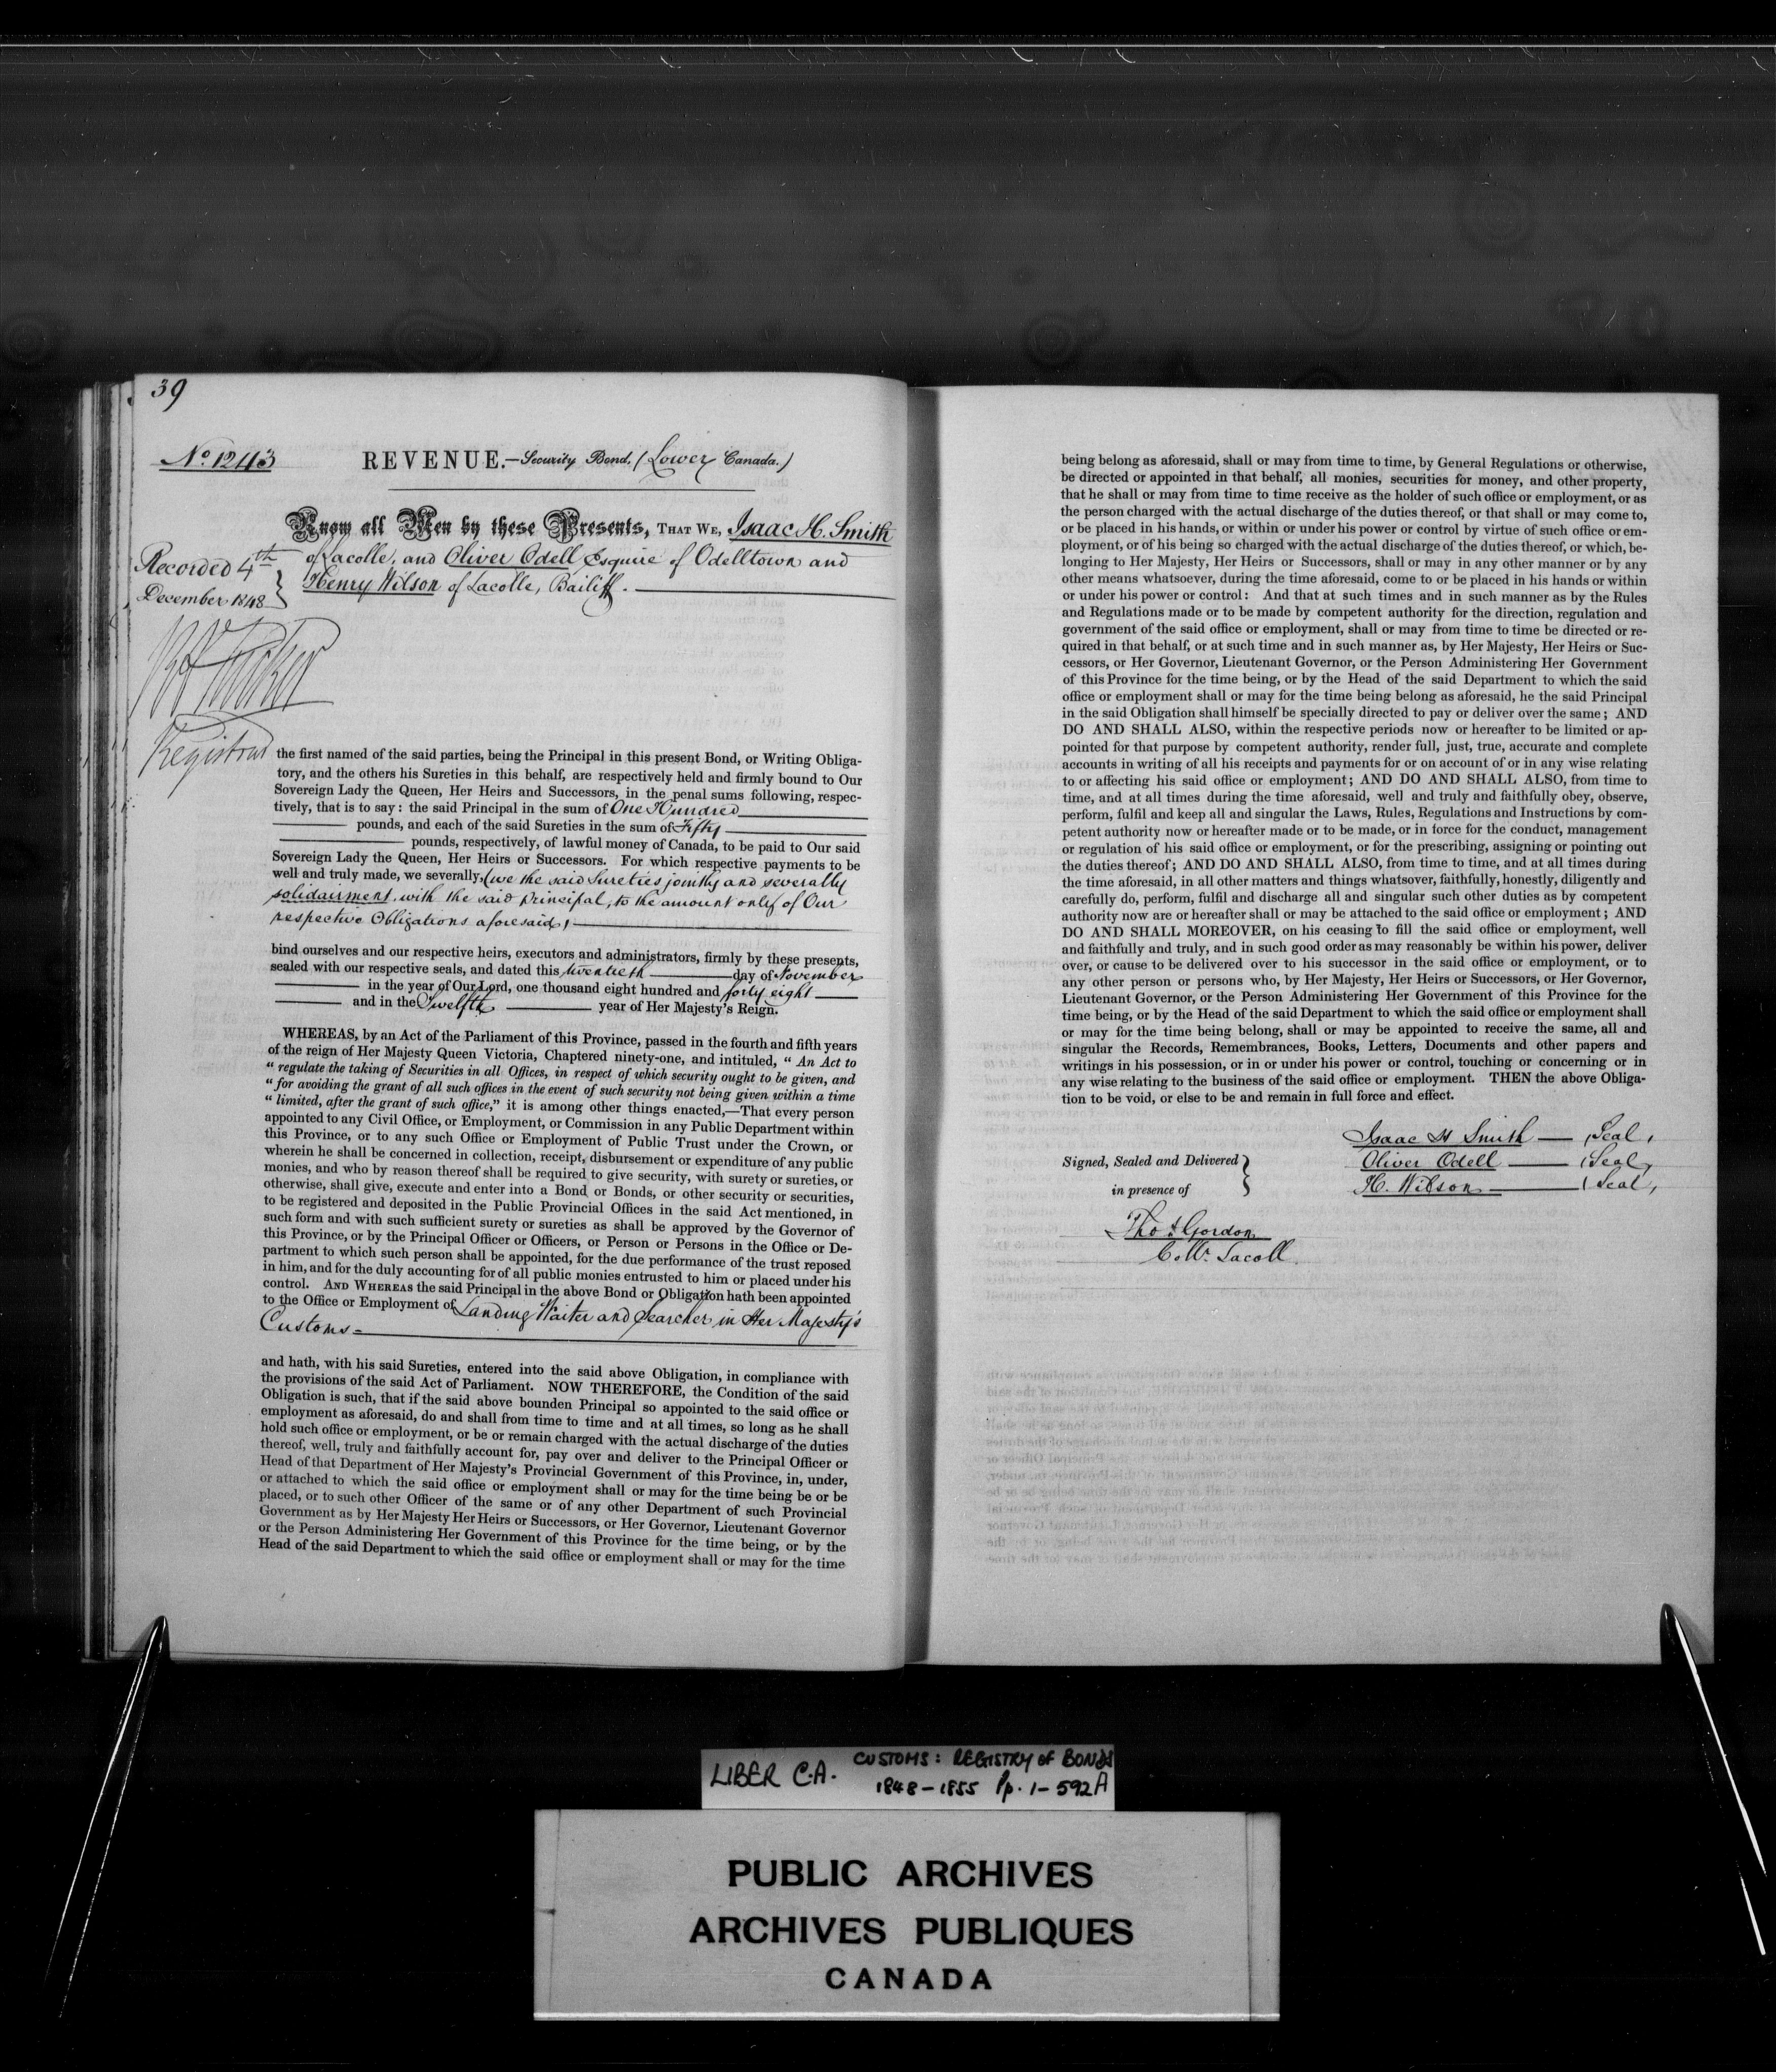 39
No. 1243
REVENUE.—Security Bond. (Lower Canada.)
Know all Men by these Presents, THAT WE, Isaac H. Smith
of Lacolle, and Oliver Odell Esquire of Odelltown and
Henry Wilson of Lacolle, Bailiff.
Recorded 4th
December 1848
Registrar
the first named of the said parties, being the Principal in this present Bond, or Writing Obliga-
tory, and the others his Sureties in this behalf, are respectively held and firmly bound to Our
Sovereign Lady the Queen, Her Heirs and Successors, in the penal sums following, respec-
tively, that is to say: the said Principal in the sum of One Hundred
pounds, and each of the said Sureties in the sum of Fifty
pounds, respectively, of lawful money of Canada, to be paid to Our said
Sovereign Lady the Queen, Her Heirs or Successors. For which respective payments to be
well and truly made, we severally, (we the said Sureties jointly and severally
solidairment, with the said principal, to the amount only of Our
respective Obligations aforesaid,
bind ourselves and our respective heirs, executors and administrators, firmly by these presents,
sealed with our respective seals, and dated this twentieth day of November
in the year of Our Lord, one thousand eight hundred and forty eight
and in the Twelfth year of Her Majesty's Reign.
WHEREAS, by an Act of the Parliament of this Province, passed in the fourth and fifth years
of the reign of Her Majesty Queen Victoria, Chaptered ninety-one, and intituled, " An Act to
" regulate the taking of Securities in all Offices, in respect of which security ought to be given, and
" for avoiding the grant of all such offices in the event of such security not being given within a time
" limited, after the grant of such office," it is among other things enacted,—That every person
appointed to any Civil Office, or Employment, or Commission in any Public Department within
this Province, or to any such Office or Employment of Public Trust under the Crown, or
wherein he shall be concerned in collection, receipt, disbursement or expenditure of any public
monies, and who by reason thereof shall be required to give security, with surety or sureties, or
otherwise, shall give, execute and enter into a Bond or Bonds, or other security or securities,
to be registered and deposited in the Public Provincial Offices in the said Act mentioned, in
such form and with such sufficient surety or sureties as shall be approved by the Governor of
this Province, or by the Principal Officer or Officers, or Person or Persons in the Office or De-
partment to which such person shall be appointed, for the due performance of the trust reposed
in him, and for the duly accounting for of all public monies entrusted to him or placed under his
control. AND WHEREAS the said Principal in the above Bond or Obligation hath been appointed
to the Office or Employment of Landing Waiter and Searcher in Her Majesty's
Customs
and hath, with his said Sureties, entered into the said above Obligation, in compliance with
the provisions of the said Act of Parliament. NOW THEREFORE, the Condition of the said
Obligation is such, that if the said above bounden Principal so appointed to the said office or
employment as aforesaid, do and shall from time to time and at all times, so long as he shall
hold such office or employment, or be or remain charged with the actual discharge of the duties
thereof, well, truly and faithfully account for, pay over and deliver to the Principal Officer or
Head of that Department of Her Majesty's Provincial Government of this Province, in, under,
or attached to which the said office or employment shall or may for the time being be or be
placed, or to such other Officer of the same or of any other Department of such Provincial
Government as by Her Majesty Her Heirs or Successors, or Her Governor, Lieutenant Governor
or the Person Administering Her Government of this Province for the time being, or by the
Head of the said Department to which the said office or employment shall or may for the time
being belong as aforesaid, shall or may from time to time, by General Regulations or otherwise,
be directed or appointed in that behalf, all monies, securities for money, and other property,
that he shall or may from time to time receive as the holder of such office or employment, or as
the person charged with the actual discharge of the duties thereof, or that shall or may come to,
or be placed in his hands, or within or under his power or control by virtue of such office or em-
ployment, or of his being so charged with the actual discharge of the duties thereof, or which, be-
longing to Her Majesty, Her Heirs or Successors, shall or may in any other manner or by any
other means whatsoever, during the time aforesaid, come to or be placed in his hands or within
or under his power or control: And that at such times and in such manner as by the Rules
and Regulations made or to be made by competent authority for the direction, regulation and
government of the said office or employment, shall or may from time to time be directed or re-
quired in that behalf, or at such time and in such manner as, by Her Majesty, Her Heirs or Suc-
cessors, or Her Governor, Lieutenant Governor, or the Person Administering Her Government
of this Province for the time being, or by the Head of the said Department to which the said
office or employment shall or may for the time being belong as aforesaid, he the said Principal
in the said Obligation shall himself be specially directed to pay or deliver over the same; AND
DO AND SHALL ALSO, within the respective periods now or hereafter to be limited or ap-
pointed for that purpose by competent authority, render full, just, true, accurate and complete
accounts in writing of all his receipts and payments for or on account of or in any wise relating
to or affecting his said office or employment; AND DO AND SHALL ALSO, from time to
time, and at all times during the time aforesaid, well and truly and faithfully obey, observe,
perform, fulfil and keep all and singular the Laws, Rules, Regulations and Instructions by com-
petent authority now or hereafter made or to be made, or in force for the conduct, management
or regulation of his said office or employment, or for the prescribing, assigning or pointing out
the duties thereof; AND DO AND SHALL ALSO, from time to time, and at all times during
the time aforesaid, in all other matters and things whatsover, faithfully, honestly, diligently and
carefully do, perform, fulfil and discharge all and singular such other duties as by competent
authority now are or hereafter shall or may be attached to the said office or employment; AND
DO AND SHALL MOREOVER, on his ceasing to fill the said office or employment, well
and faithfully and truly, and in such good order as may reasonably be within his power, deliver
over, or cause to be delivered over to his successor in the said office or employment, or to
any other person or persons who, by Her Majesty, Her Heirs or Successors, or Her Governor,
Lieutenant Governor, or the Person Administering Her Government of this Province for the
time being, or by the Head of the said Department to which the said office or employment shall
or may for the time being belong, shall or may be appointed to receive the same, all and
singular the Records, Remembrances, Books, Letters, Documents and other papers and
writings in his possession, or in or under his power or control, touching or concerning or in
any wise relating to the business of the said office or employment. THEN the above Obliga-
tion to be void, or else to be and remain in full force and effect.
Isaac H Smith (Seal)
Oliver Odell (Seal)
H. Wilson (Seal)
Signed, Sealed and Delivered
in presence of
Tho s Gordon
Lacoll
LIBER C.A. CUSTOMS: REGISTRY OF BONDS
1848-1855 Pp. 1-592A
PUBLIC ARCHIVES
ARCHIVES PUBLIQUES
CANADA